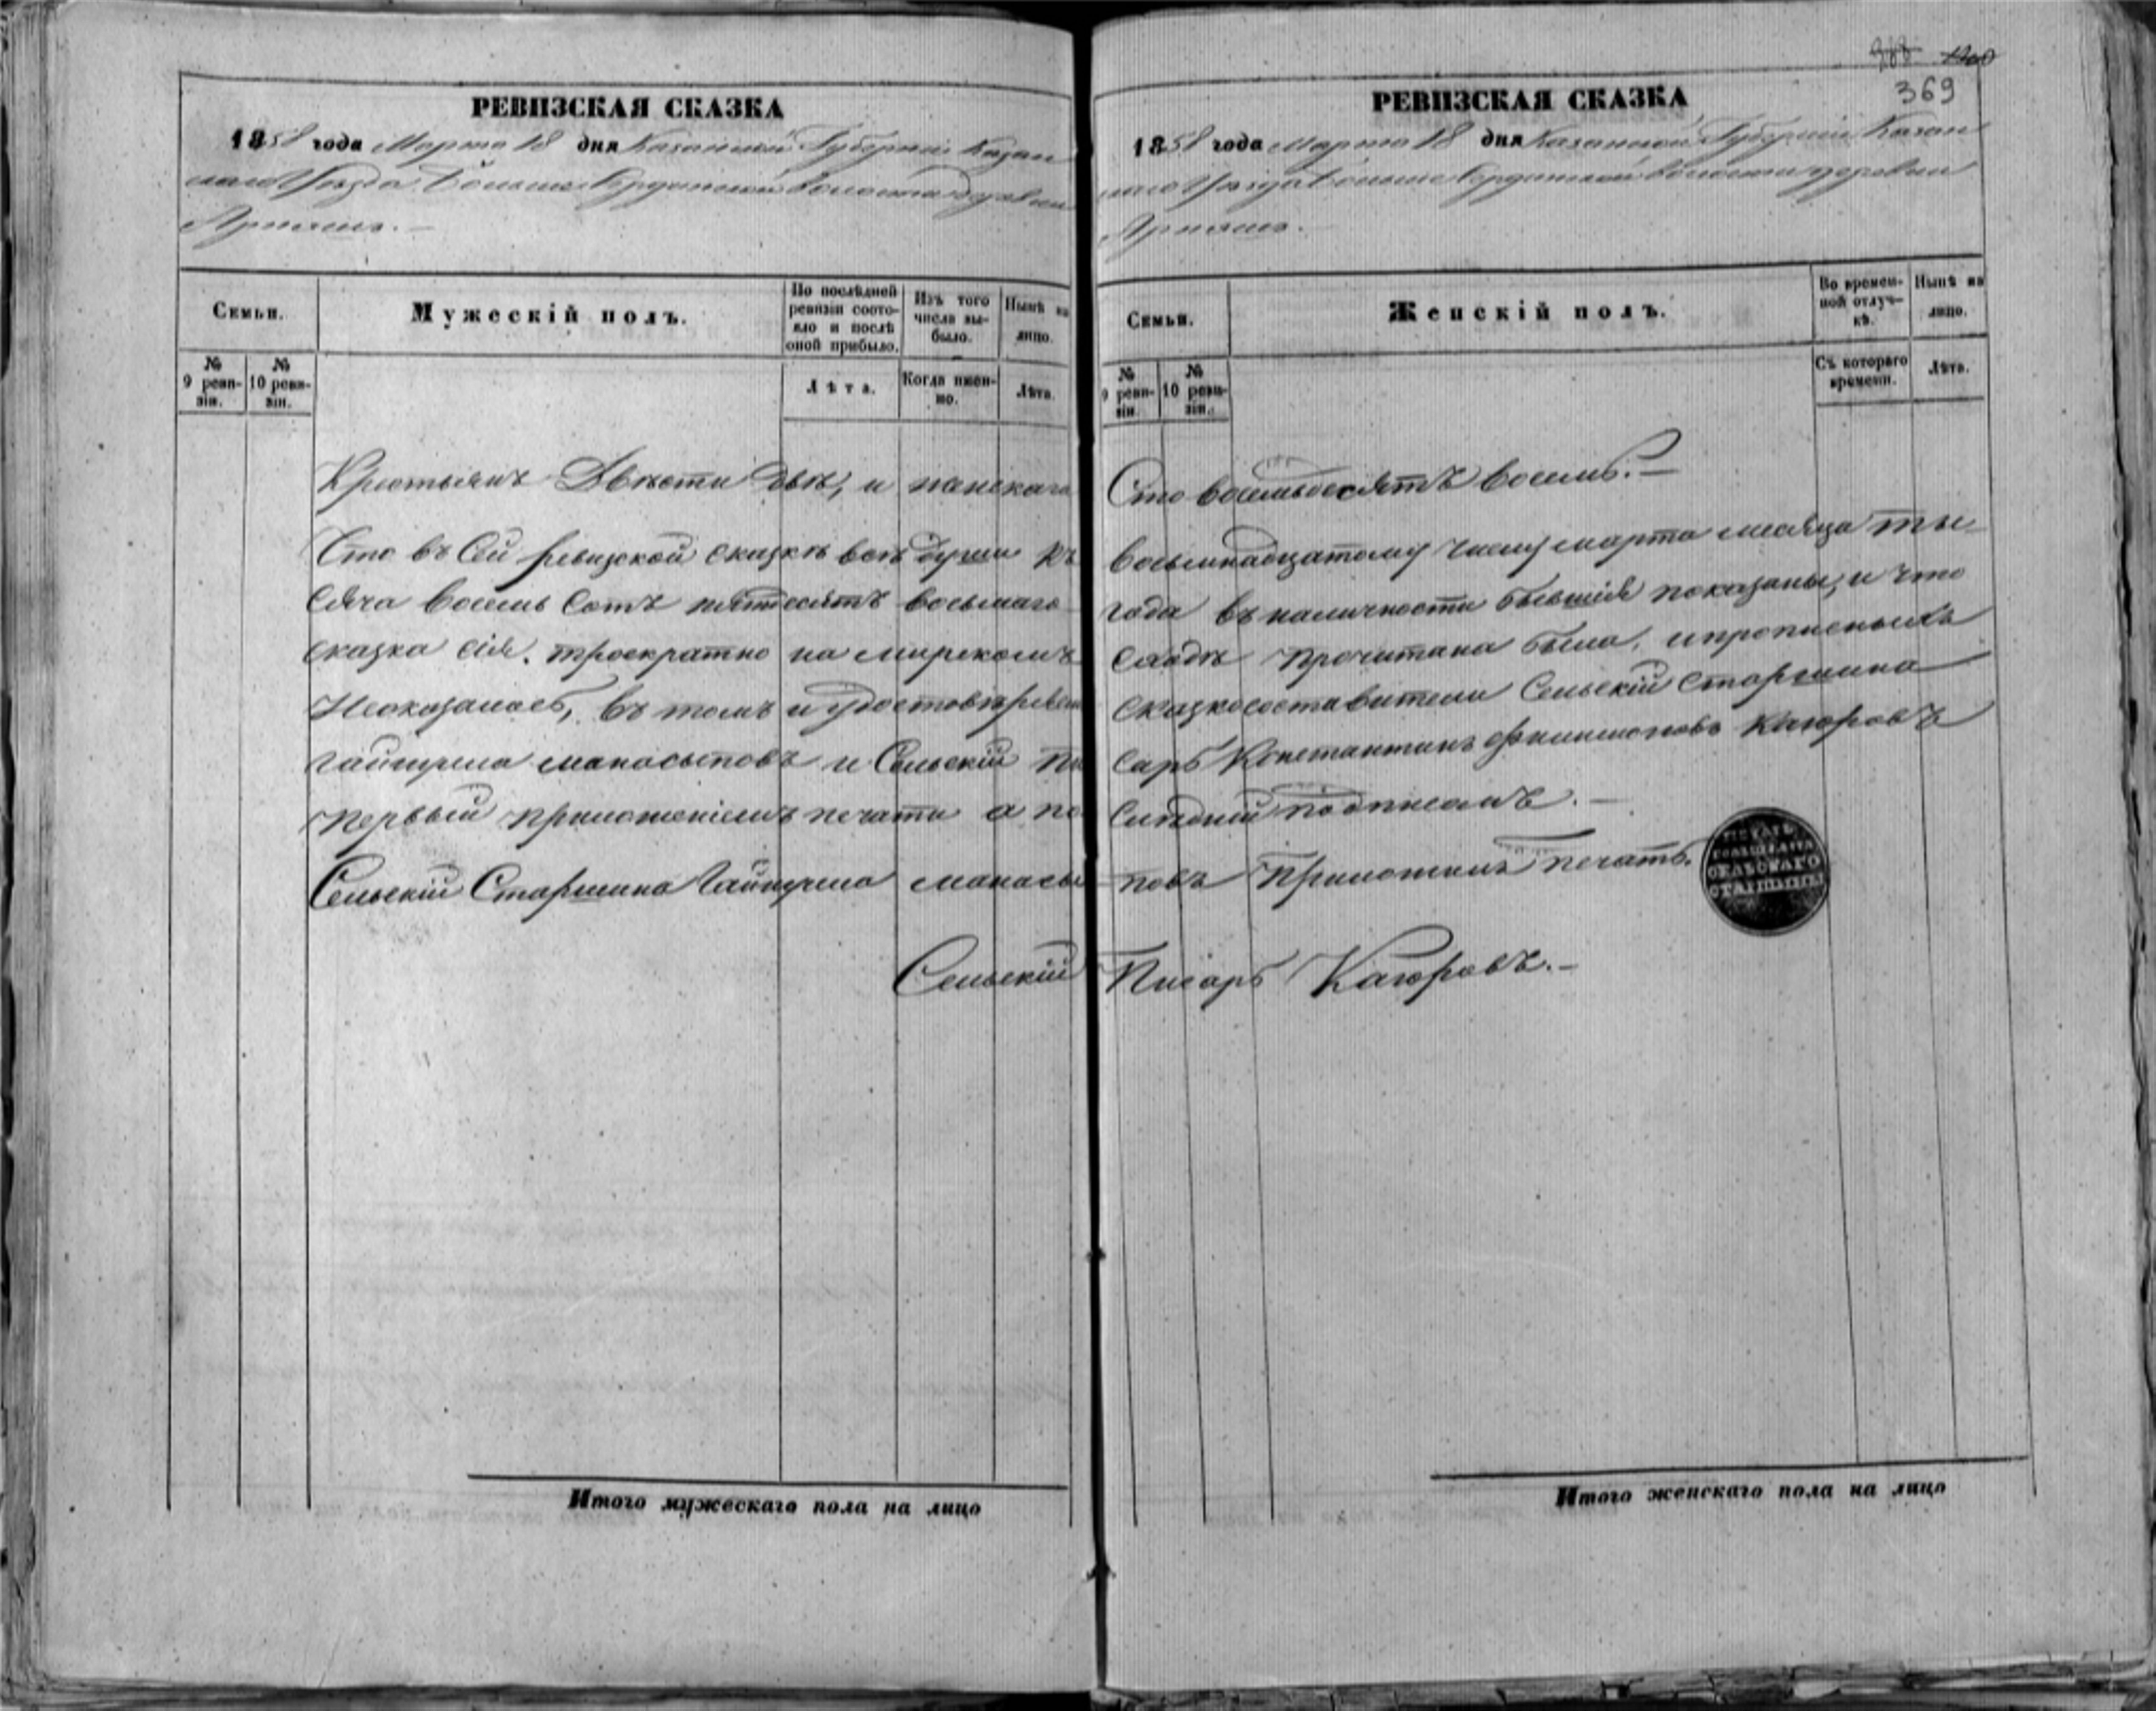 368 1200
369
РЕВИЗСКАЯ СКАЗКА
1858 года Марта 18 дня Казанской Губерніи Казан
скаго Уѣзда Больше Сердинской Волости деревни
Арпяшъ.
Семьи.
Мужескій полъ.
По послѣдней ревизіи состояло и послѣ оной прибыло.
Изъ того числа выбыло.
Нынѣ на лицо.
№ 9 ревизіи.
№ 10 ревизіи.
Лѣта.
Когда именно.
Лѣта.
Крестьянъ Двѣсти двѣ, и женскаго
Что въ сей ревизской сказкѣ всѣ души къ
сяча восемь сотъ пятдесятъ восьмаго
сказка сія, троекратно на мирскомъ
Неоказалось, въ томъ и удостовѣряем
маносыповъ и Сельскій Пи
первый приложеніемъ печати а по
Сельскій Старшина маносы
Сельскій
Итого мужескаго пола на лицо
РЕВИЗСКАЯ СКАЗКА
1858 года Марта 18 дня Казанской Губерніи Казан
скаго Уѣзда Больше Сердинской волости деревни
Арпяшъ.
Семьи.
Женскій полъ.
Во временной отлучкѣ.
Нынѣ на лицо.
№ 9 ревизіи.
№ 10 ревизіи.
Съ котораго времени.
Лѣта.
Сто восемьдесятъ восемь.
восьмнадцатому числу марта месяца ты
года въ наличности бывшія показаны, и что
сходѣ прочитана была, и прописныхъ
сказкосоставители Сельскій Старшина
сарь Константинъ Филимоновъ Каюровъ
слѣдній подписомъ.
повъ приложилъ печать.
СЕЛЬСКАГО
СТАРШИНЫ
Писарь Каюровъ.
Итого женскаго пола на лицо